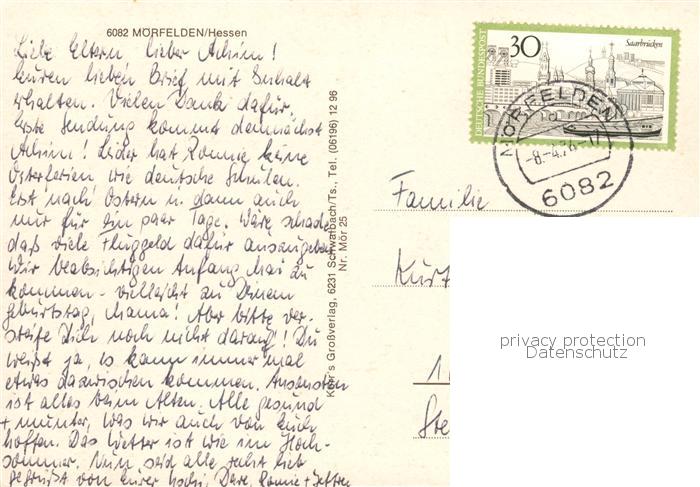 6082 MÖRFELDEN/Hessen
Liebe Eltern, lieber Achim!
Euren lieben Brief mit Inhalt
erhalten. Vielen Dank dafür,
erste Sendung kommt demnächst
Achim! Leider hat Ronnie keine
Osterferien wie deutsche Schulen.
Erst nach Ostern u. dann auch
nur für ein paar Tage. Wäre schade
daß viele Fluggeld dafür auszugeben.
Wir beabsichtigen Anfang Mai zu
kommen - vielleicht zu Deinem
Geburtstag, Mama! Aber bitte ver-
steife Dich noch nicht darauf! Du
weißt ja, es kann immer mal
etwas dazwischen kommen. Ansonsten
ist alles beim Alten. Alle gesund
+ munter, was wir auch von Euch
hoffen. Das Wetter ist wie im Hoch-
sommer. Nun seid alle recht lieb
gegrüßt von Eurer Uschi, Dave, Ronnie + Jeffrey
Kehr's Großverlag, 6231 Schwalbach/Ts., Tel. (06196) 12 96
Nr. Mör 25
30
Saarbrücken
DEUTSCHE BUNDESPOST
MÖRFELDEN
-8.-4.76-17
6082
Familie
Kurt
privacy protection
Datenschutz
1
Ste